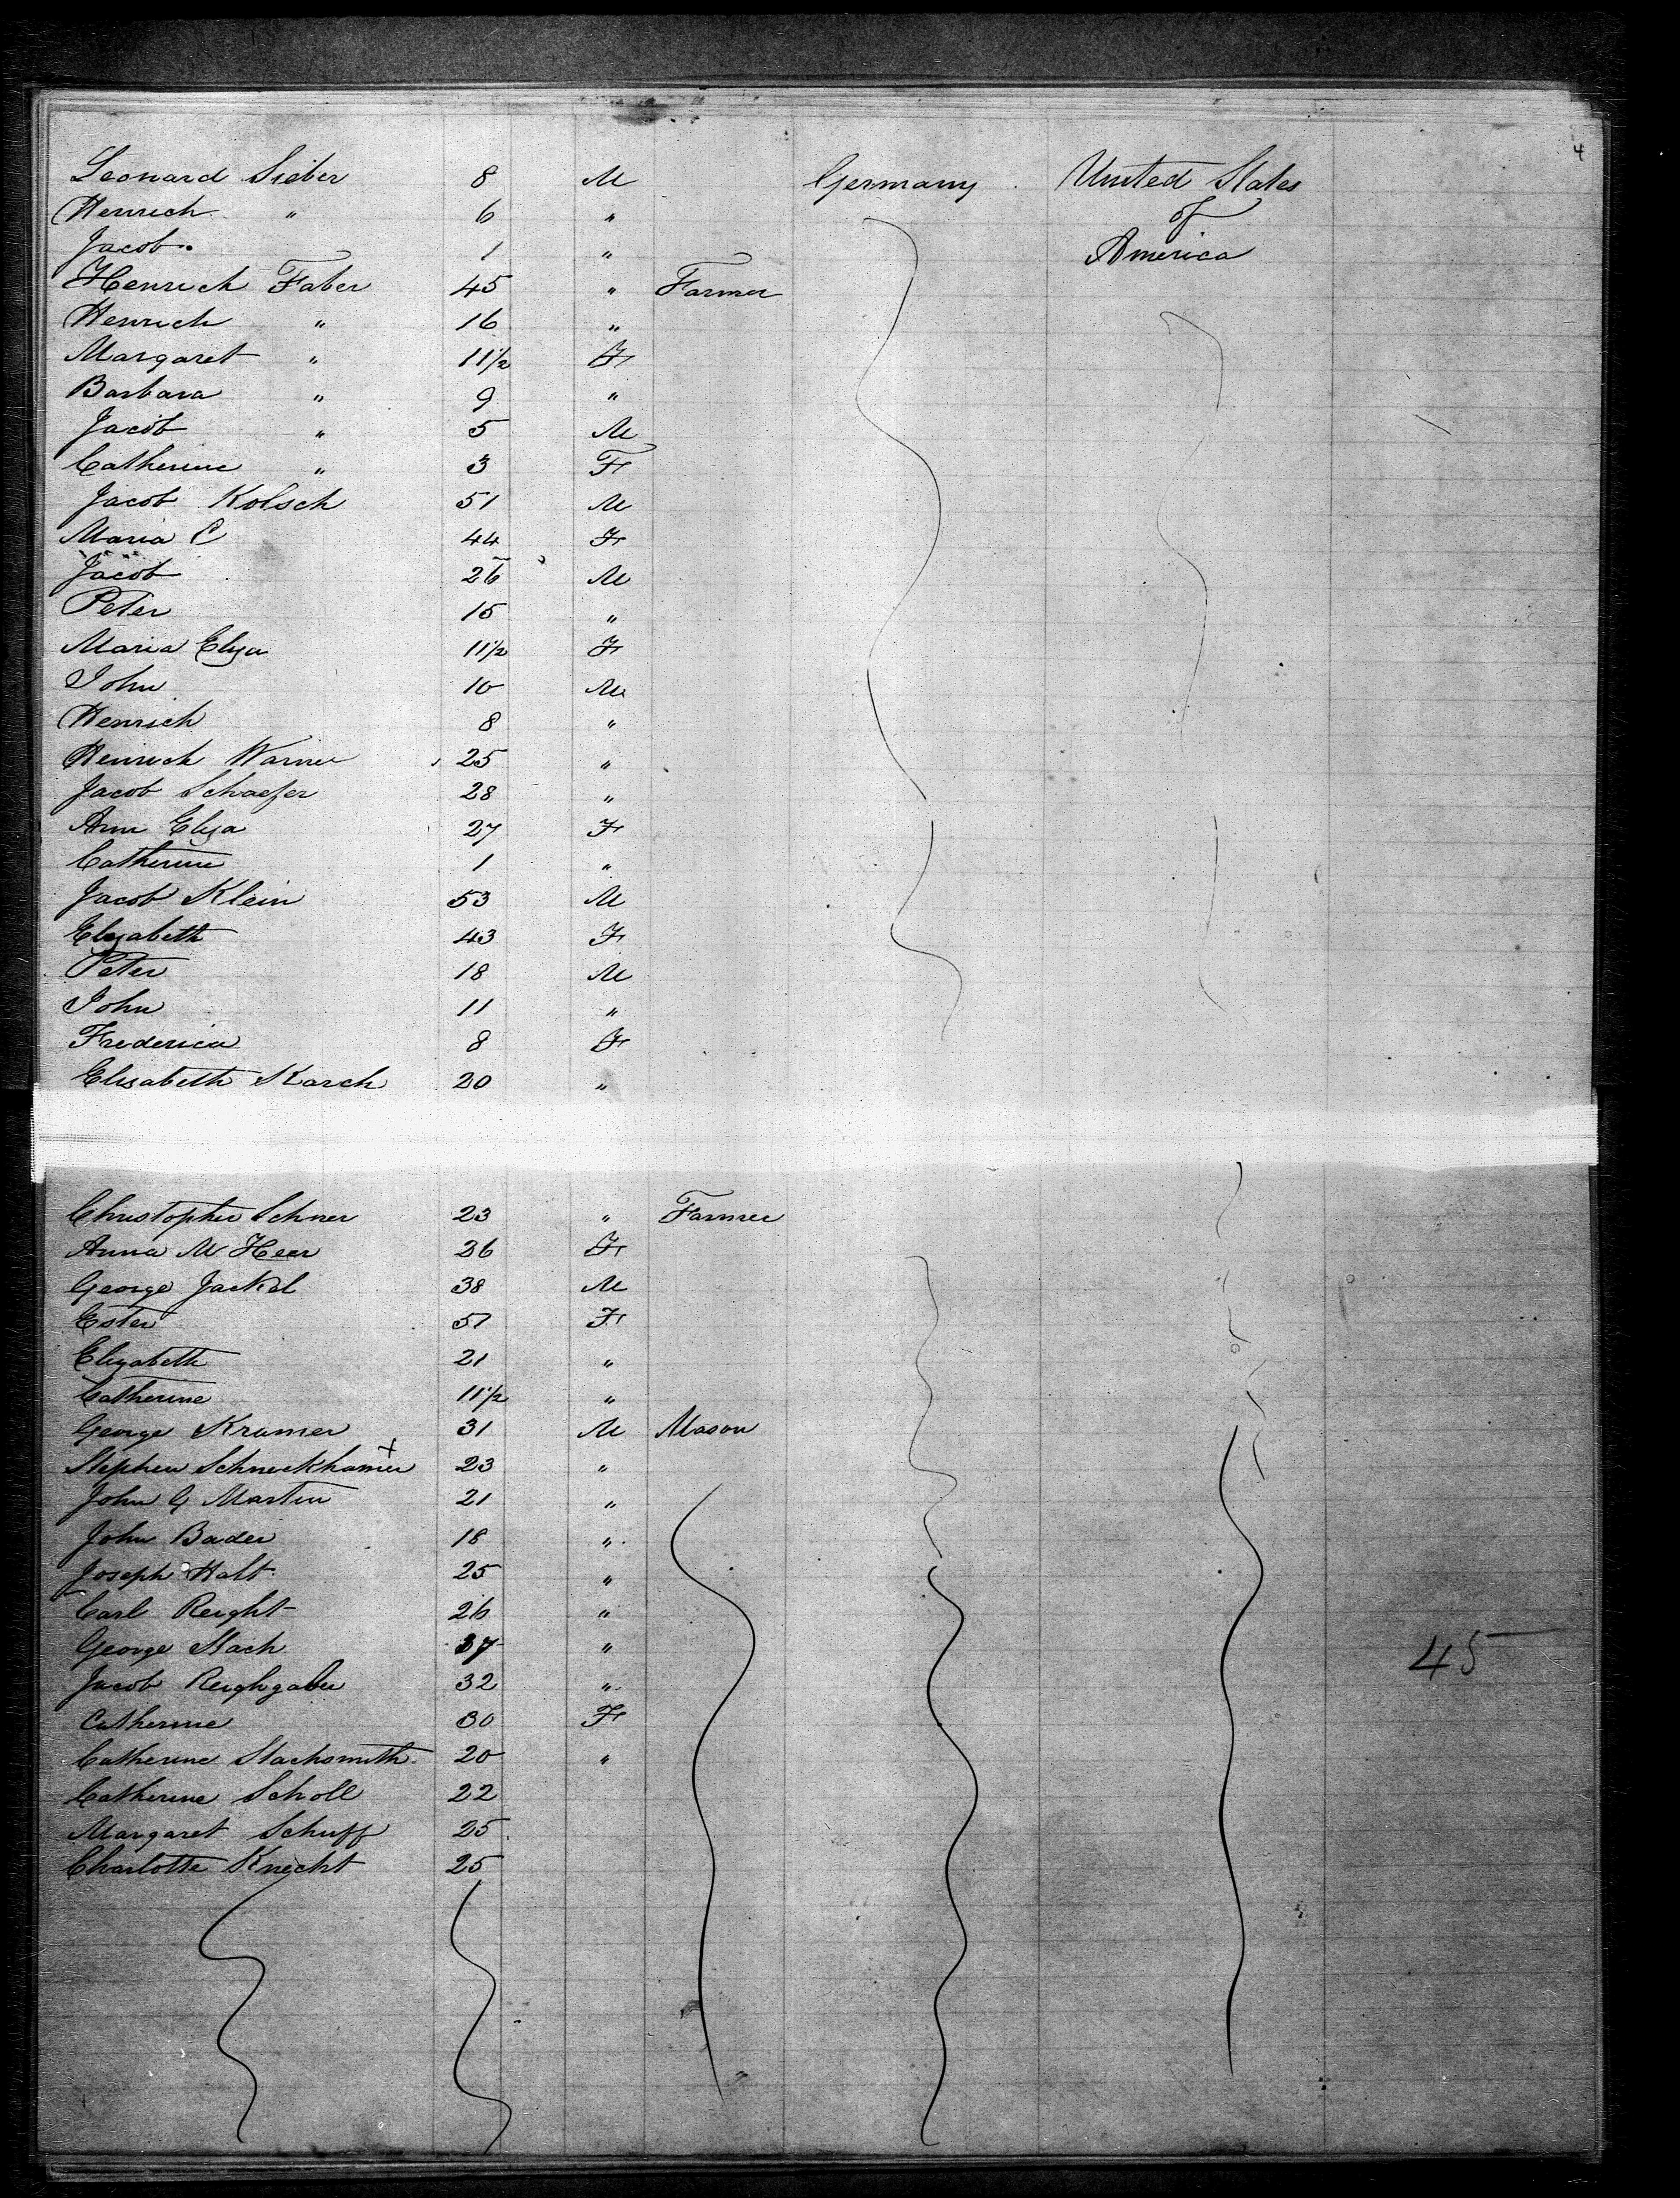 4
Leonard Sieber 8 M Germany United States
Henrich " 6 " of
Jacob " 1 " America
Henrich Faber 45 " Farmer
Henrich " 16 "
Margaret " 11½ F
Barbara " 9 "
Jacob " 5 M
Catherine " 3 F
Jacob Kolsch 51 M
Maria C 44 F
Jacob 26 M
Peter 15 "
Maria Elyza 11½ F
John 10 M
Henrich 8 "
Henrich Warner 25 "
Jacob Schaefer 28 "
Ann Elyza 27 F
Catherine 1 "
Jacob Klein 53 M
Elyzabeth 43 F
Peter 18 M
John 11 "
Frederica 8 F
Elisabeth Karch 20 "
Christopher Schner 23 " Farmer
Anna M Heer 26 F
George Jackel 38 M
Ester 57 F
Elyzabeth 21 "
Catherine 11½ "
George Kramer 31 M Mason
Stephen 23 "
John G Martin 21 "
John Bader 18 "
Joseph Halt 25 "
Carl Reight 26 "
George Stach 37 "
45
Jacob 32 "
Catherine 30 F
Catherine Stachsmith 20 "
Catherine Scholl 22
Margaret Schuff 25
Charlotte Knecht 25